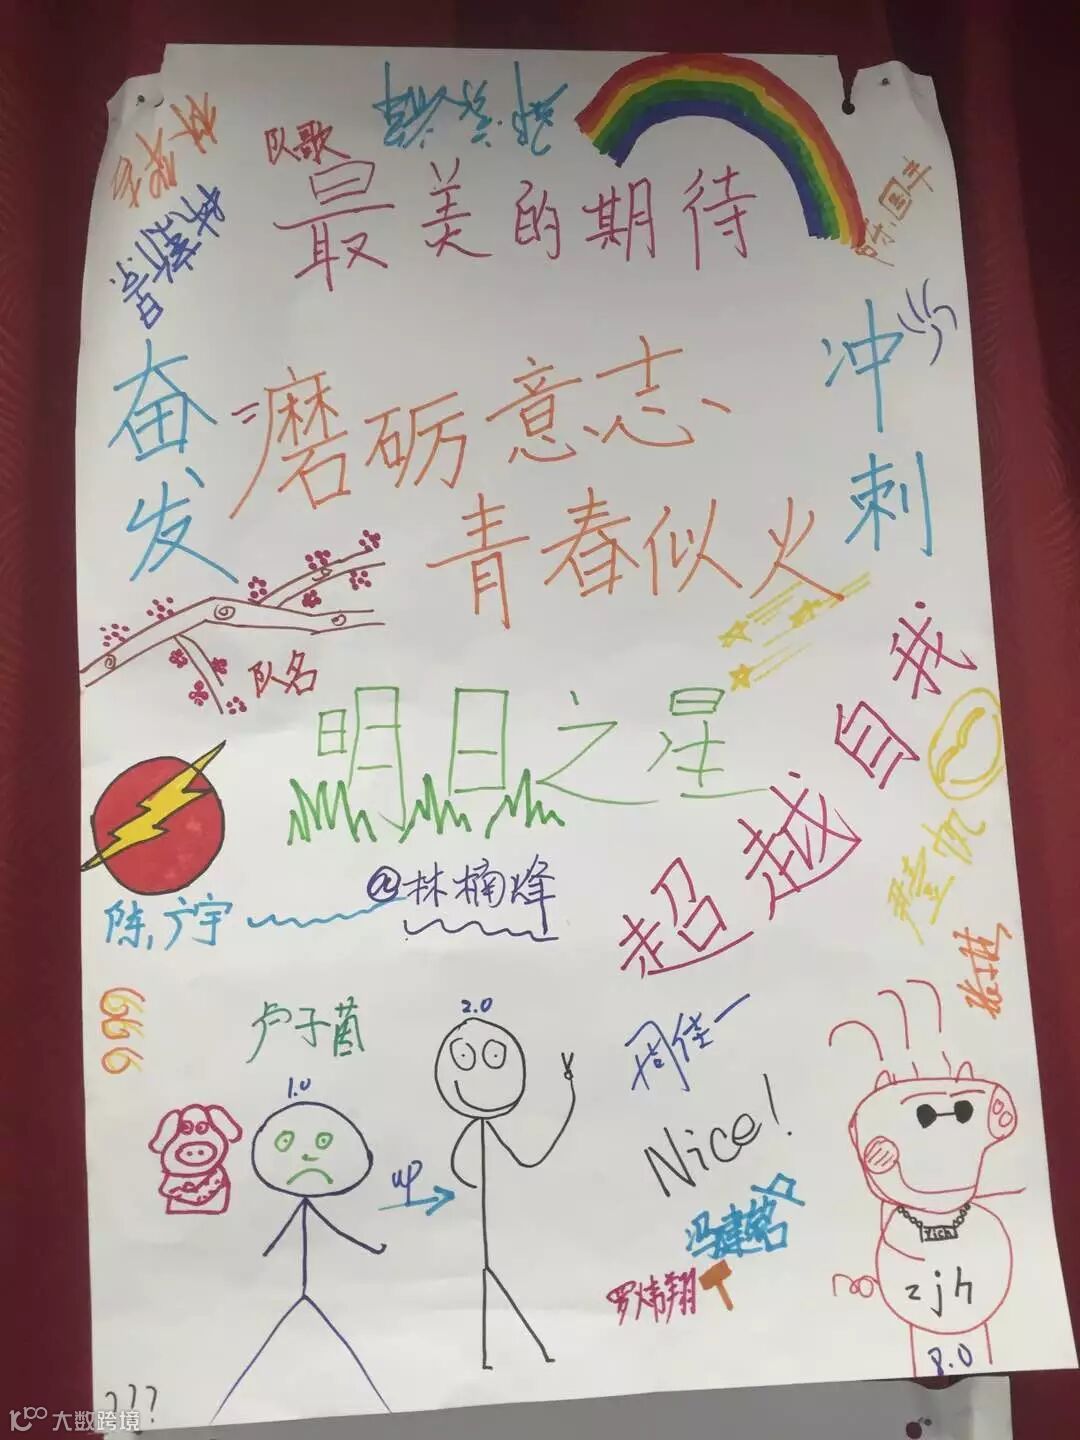 队歌
最美的期待
奋发
磨砺意志、
青春似火
冲刺
队名
明日之星
超越自我
陈广宇
@林楠烽
666
卢子茵
周佳一
1.0
2.0
up
Nice!
冯建铭
罗炜翔
rich
zjh
8.0
???
大数跨境